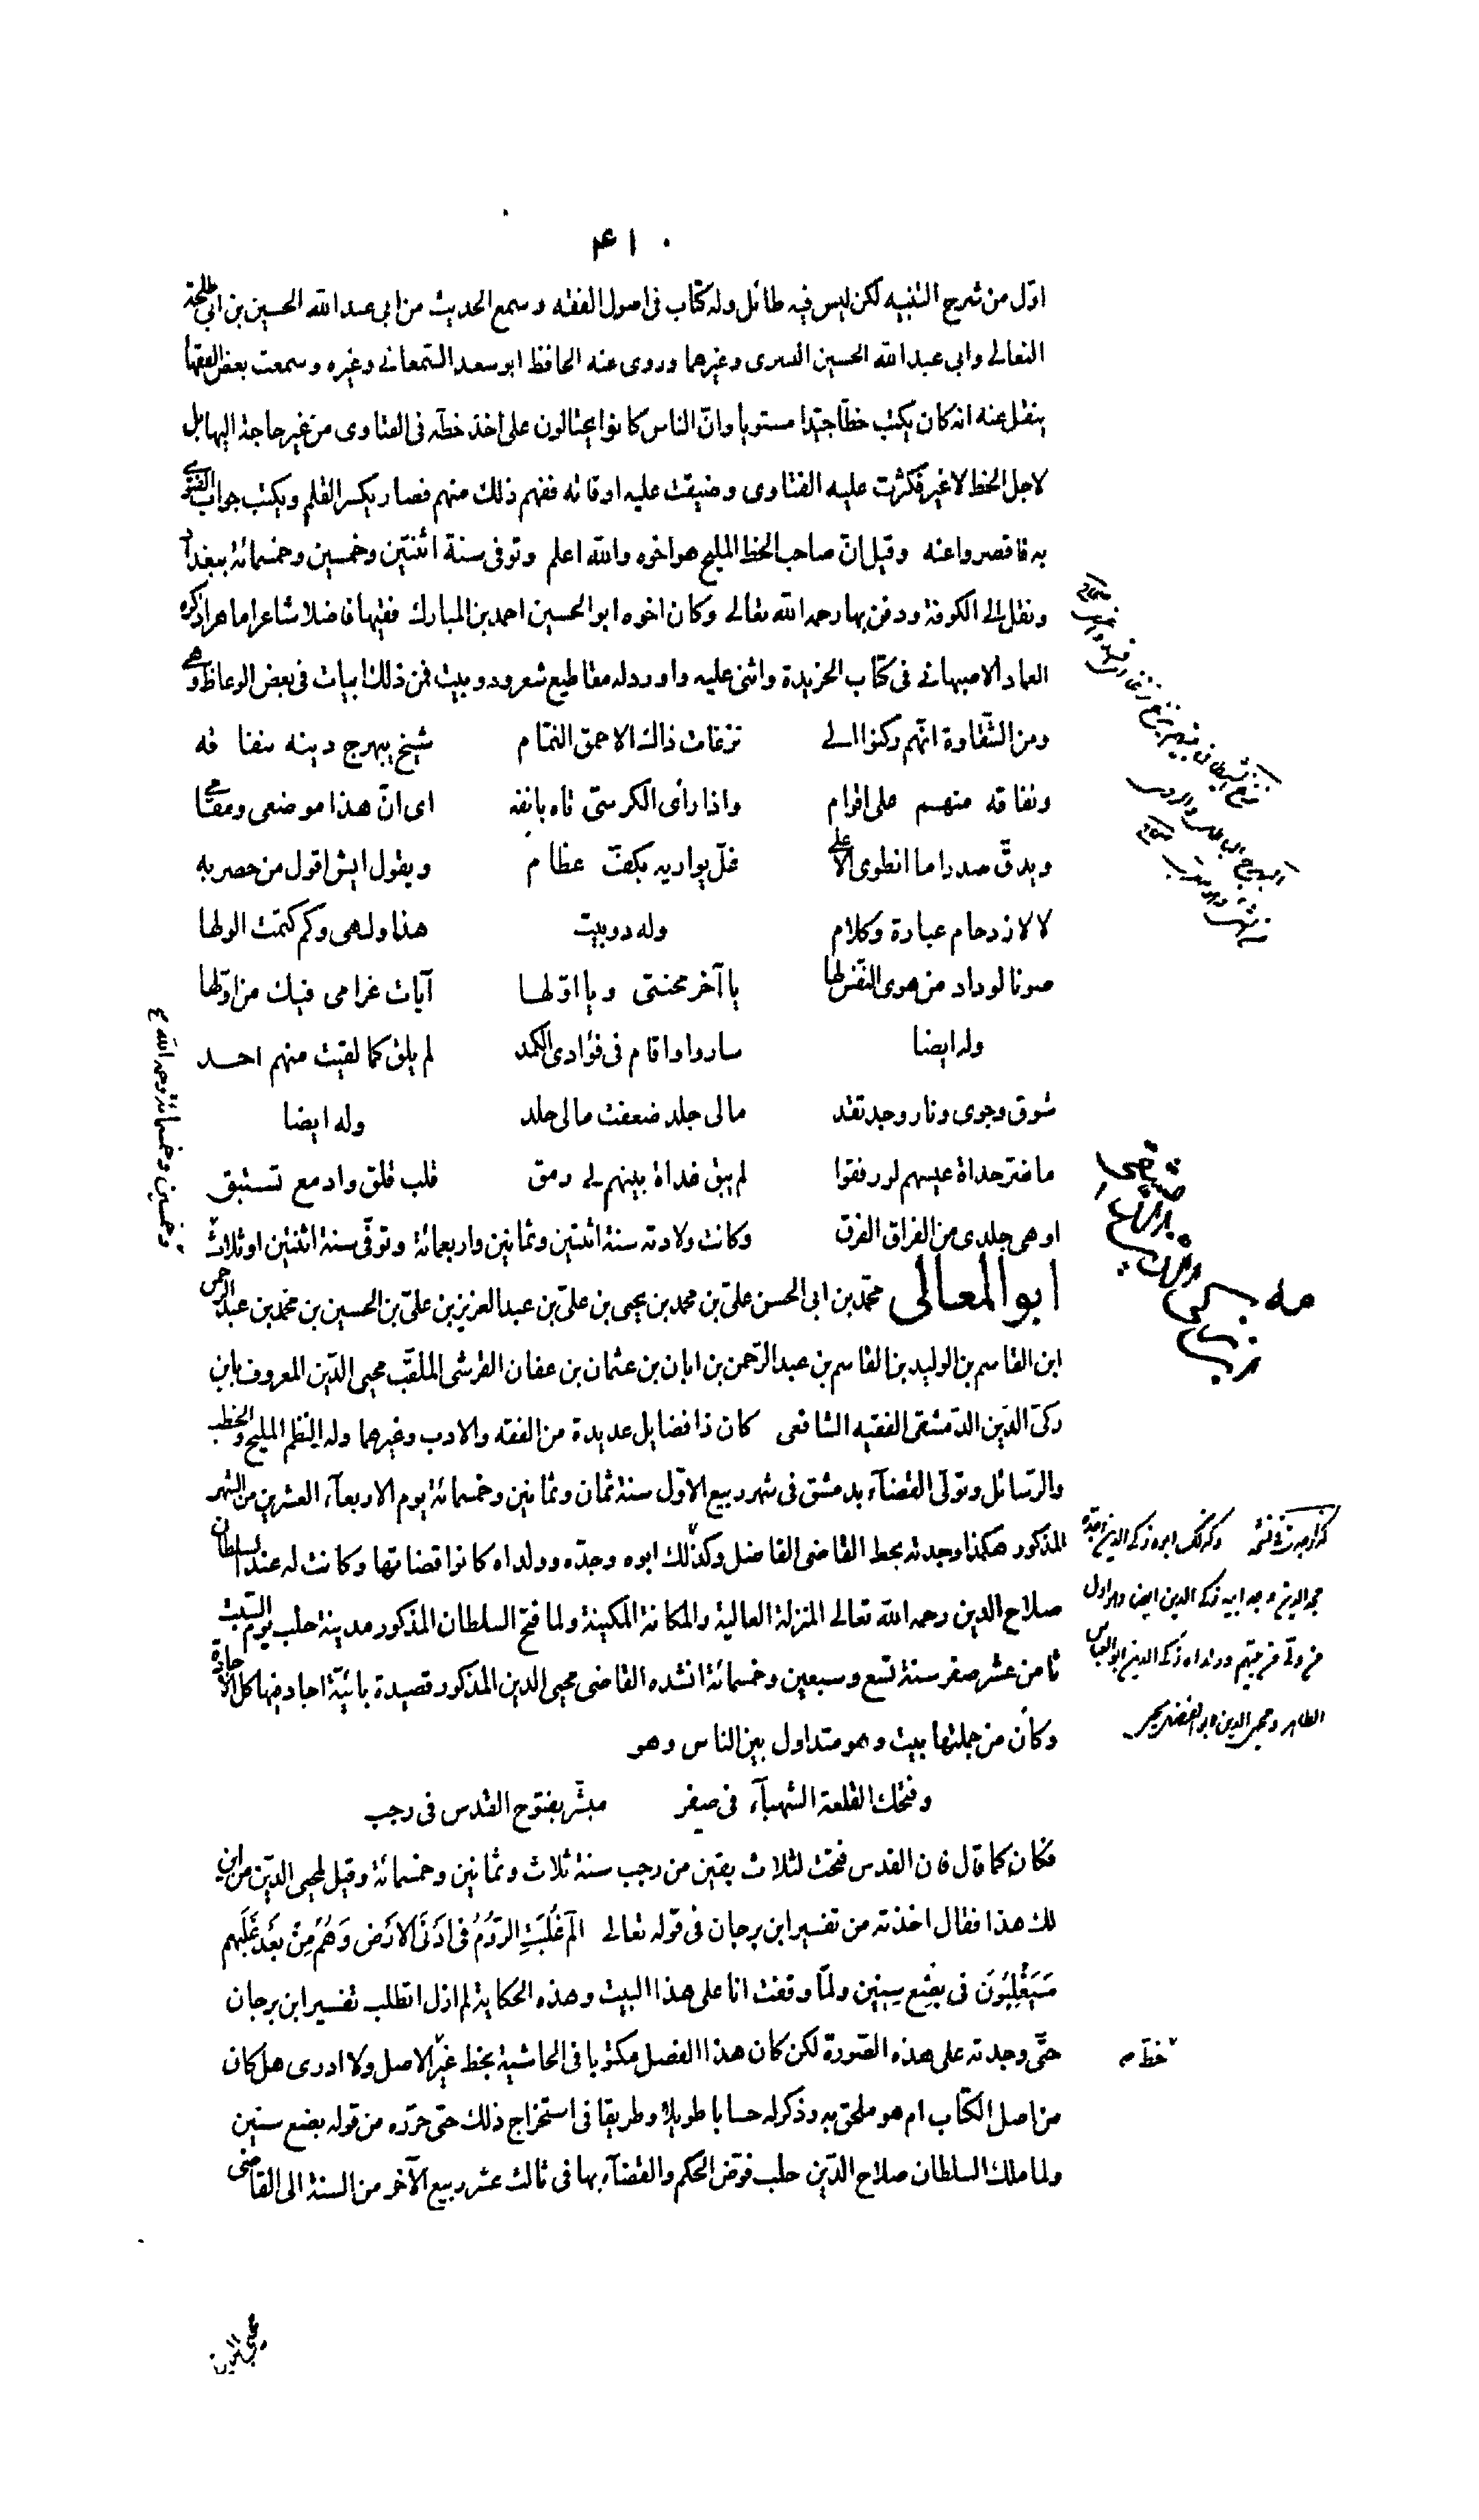 ٤١٠
اوّل من شرح التنبيه لكن ليس فيه طائل وله كتاب فى اصول الفقه وسمع الحديث من ابى عبد الله الحسين بن ابى طلحة
النعالى وابى عبد الله الحسين البسرى وغيرهما وروى عنه الحافظ ابو سعد السّمعانى وغيره وسمعت بعض الفقها
ينقل عنه انه كان يكتب خطّا جيّدا مستويا وانّ الناس كانوا يحتالون على اخذ خطّه فى الفتاوى من غير حاجة اليها بل
لاجل الخط لا غير فكثرت عليه الفتاوى وضيقت عليه اوقاته ففهم ذلك منهم فصار يكسر القلم ويكتب جواب الفتوى
به فاقصروا عنه وقيل انّ صاحب الخط المليح هو اخوه والله اعلم وتوفى سنة اثنتين وخمسين وخمسمائة ببغداد
ونقل الى الكوفة ودفن بها رحمه الله تعالى وكان اخوه ابو الحسين احمد بن المبارك فقيها فاضلا شاعرا ماهرا ذكره
العماد الاصبهانى فى كتاب الخريدة واثنى عليه واورد له مقاطيع شعر ودوبيت فمن ذلك ابيات فى بعض الوعاظ وهى
ومن الشّقاوة انّهم ركنوا الى نزغات ذاك الاحمق التمتام شيخ يبهرج دينه بنفاقه
ونفاقه منهم على اقوام واذا رأى الكرسىّ تاه بانفه اى انّ هذا موضعى ومقامى
ويدقّ صدرا ما انطوى الا على غلّ يواريه بكفّ عظام ويقول ايش اقول من حصر به
لا لازدحام عبارة وكلام وله دوبيت هذا ولهى وكم كتمت الولها
صونا لوداد من هوى النّفس لها يا آخر محنتى ويا اوّلها آيات غرامى فيك من اوّلها
وله ايضا ساروا واقام فى فؤادى الكمد لم يلق كما لقيت منهم احد
شوق وجوى ونار وجد تقد مالى جلد ضعفت مالى جلد وله ايضا
ما ضر حداة عيسهم لو رفقوا لم يبق غداة بينهم لى رمق قلب قلق وادمع تستبق
اوهى جلدى من الفراق الفرق وكانت ولادته سنة اثنتين وثمانين واربعمائة وتوفّى سنة اثنتين او ثلاث
وخمسين وخمسمائة رحمه الله
ابو المعالى محمّد بن ابى الحسن علىّ بن محمد بن يحيى بن علىّ بن عبد العزيز بن علىّ بن الحسين بن محمّد بن عبد الرحمن
ابن القاسم بن الوليد بن القاسم بن عبد الرّحمن بن ابان بن عثمان بن عفان القرشى الملقّب محيى الدّين المعروف بابن
زكىّ الدّين الدّمشقى الفقيه الشافعى كان ذا فضايل عديدة من الفقه والادب وغيرهما وله النّظم المليح والخطب
والرّسائل وتولّى القضآء بدمشق فى شهر ربيع الاوّل سنة ثمان وثمانين وخمسمائة يوم الاربعآء العشرين من الشهر
المذكور هكذا وجدته بخط القاضى الفاضل وكذلك ابوه وجدّه وولداه كانوا قضاتها وكانت له عند السلطان
صلاح الدين رحمه الله تعالى المنزلة العالية والمكانة المكينة ولما فتح السلطان المذكور مدينة حلب يوم السّبت
ثامن عشر صفر سنة تسع وسبعين وخمسمائة انشده القاضى محيى الدين المذكور قصيدة بائيّة اجاد فيها كل الاجادة
وكان من جملتها بيت وهو متداول بين الناس وهو
وفتحك القلعة الشهبآء فى صفر مبشّر بفتوح القدس فى رجب
فكان كما قال فان القدس فتحت لثلاث بقين من رجب سنة ثلاث وثمانين وخمسمائة وقيل لمحيى الدّين من اين
لك هذا فقال اخذته من تفسير ابن برجان فى قوله تعالى الٓمٓ غُلِبَتِ الرّوُمُ فى اَدْنَى الاَرْض وَهُم مِنْ بَعْد غَلَبهِم
سَيَغْلِبُوُنَ فى بِضْع سِنِين ولمّا وقفت انا على هذا البيت وهذه الحكاية لم ازل اتطلب تفسير ابن برجان
حتّى وجدته على هذه الصّورة لكن كان هذا الفصل مكتوبا فى الحاشية بخط غير الاصل ولا ادرى هل كان
من اصل الكتاب ام هو ملحق به وذكر له حسابا طويلا وطريقا فى استخراج ذلك حتى حرّره من قوله بضع سنين
ولما ملك السلطان صلاح الدّين حلب فوّض الحكم والقضآء بها فى ثالث عشر ربيع الآخر من السنة الى القاضى